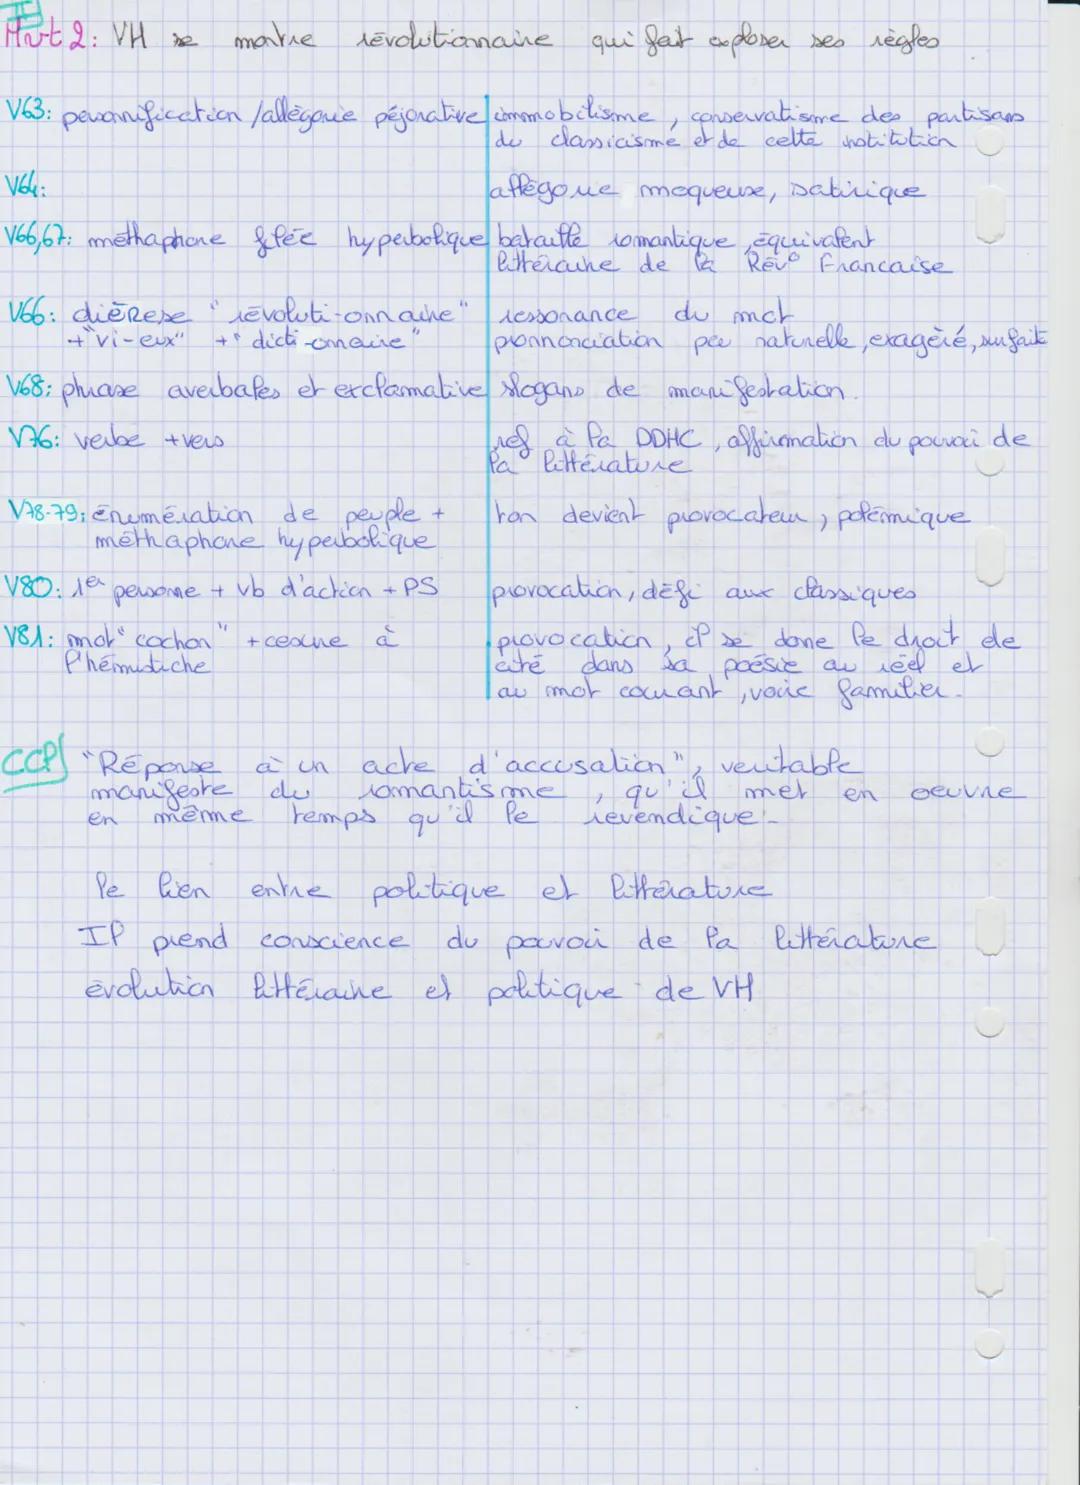 II
Mvt 2: VH se montre révolutionnaire qui fait exploser ses règles
V63: personnification /allégorie péjorative immobilisme, conservatisme des partisans
du classicisme et de cette institution
V64: allégorie moqueuse, satirique
V66,67: méthaphore filée hyperbolique bataille romantique, équivalent
littéraire de la Rév° Francaise
V66: diérese "révoluti-onnaire" ressonance du mot
+"vi-eux" +"dicti-onnaire" prononciation peu naturelle, exagéré, surfait
V68: phrase averbales et exclamative slogans de manifestation.
V76: verbe + vers ref à la DDHC, affirmation du pouvoi de
la littérature
V78-79: énumération de peuple + ton devient provocateur, polémique
méthaphore hyperbolique
V80: 1er personne + vb d'action + PS provocation, défi aux classiques
V81: mot "cochon" + cesure à provocation, il se done le droit de
l'hémistiche cité dans sa poésie au réel et
au mot courant, voire familier.
CCP "Réponse à un acte d'accusation", veritable
manifeste du romantisme, qu'il met en oeuvre
en même temps qu'il le revendique.
le lien entre politique et littérature
Il prend conscience du pouvoi de la littérature
évolution littéraire et politique de VH